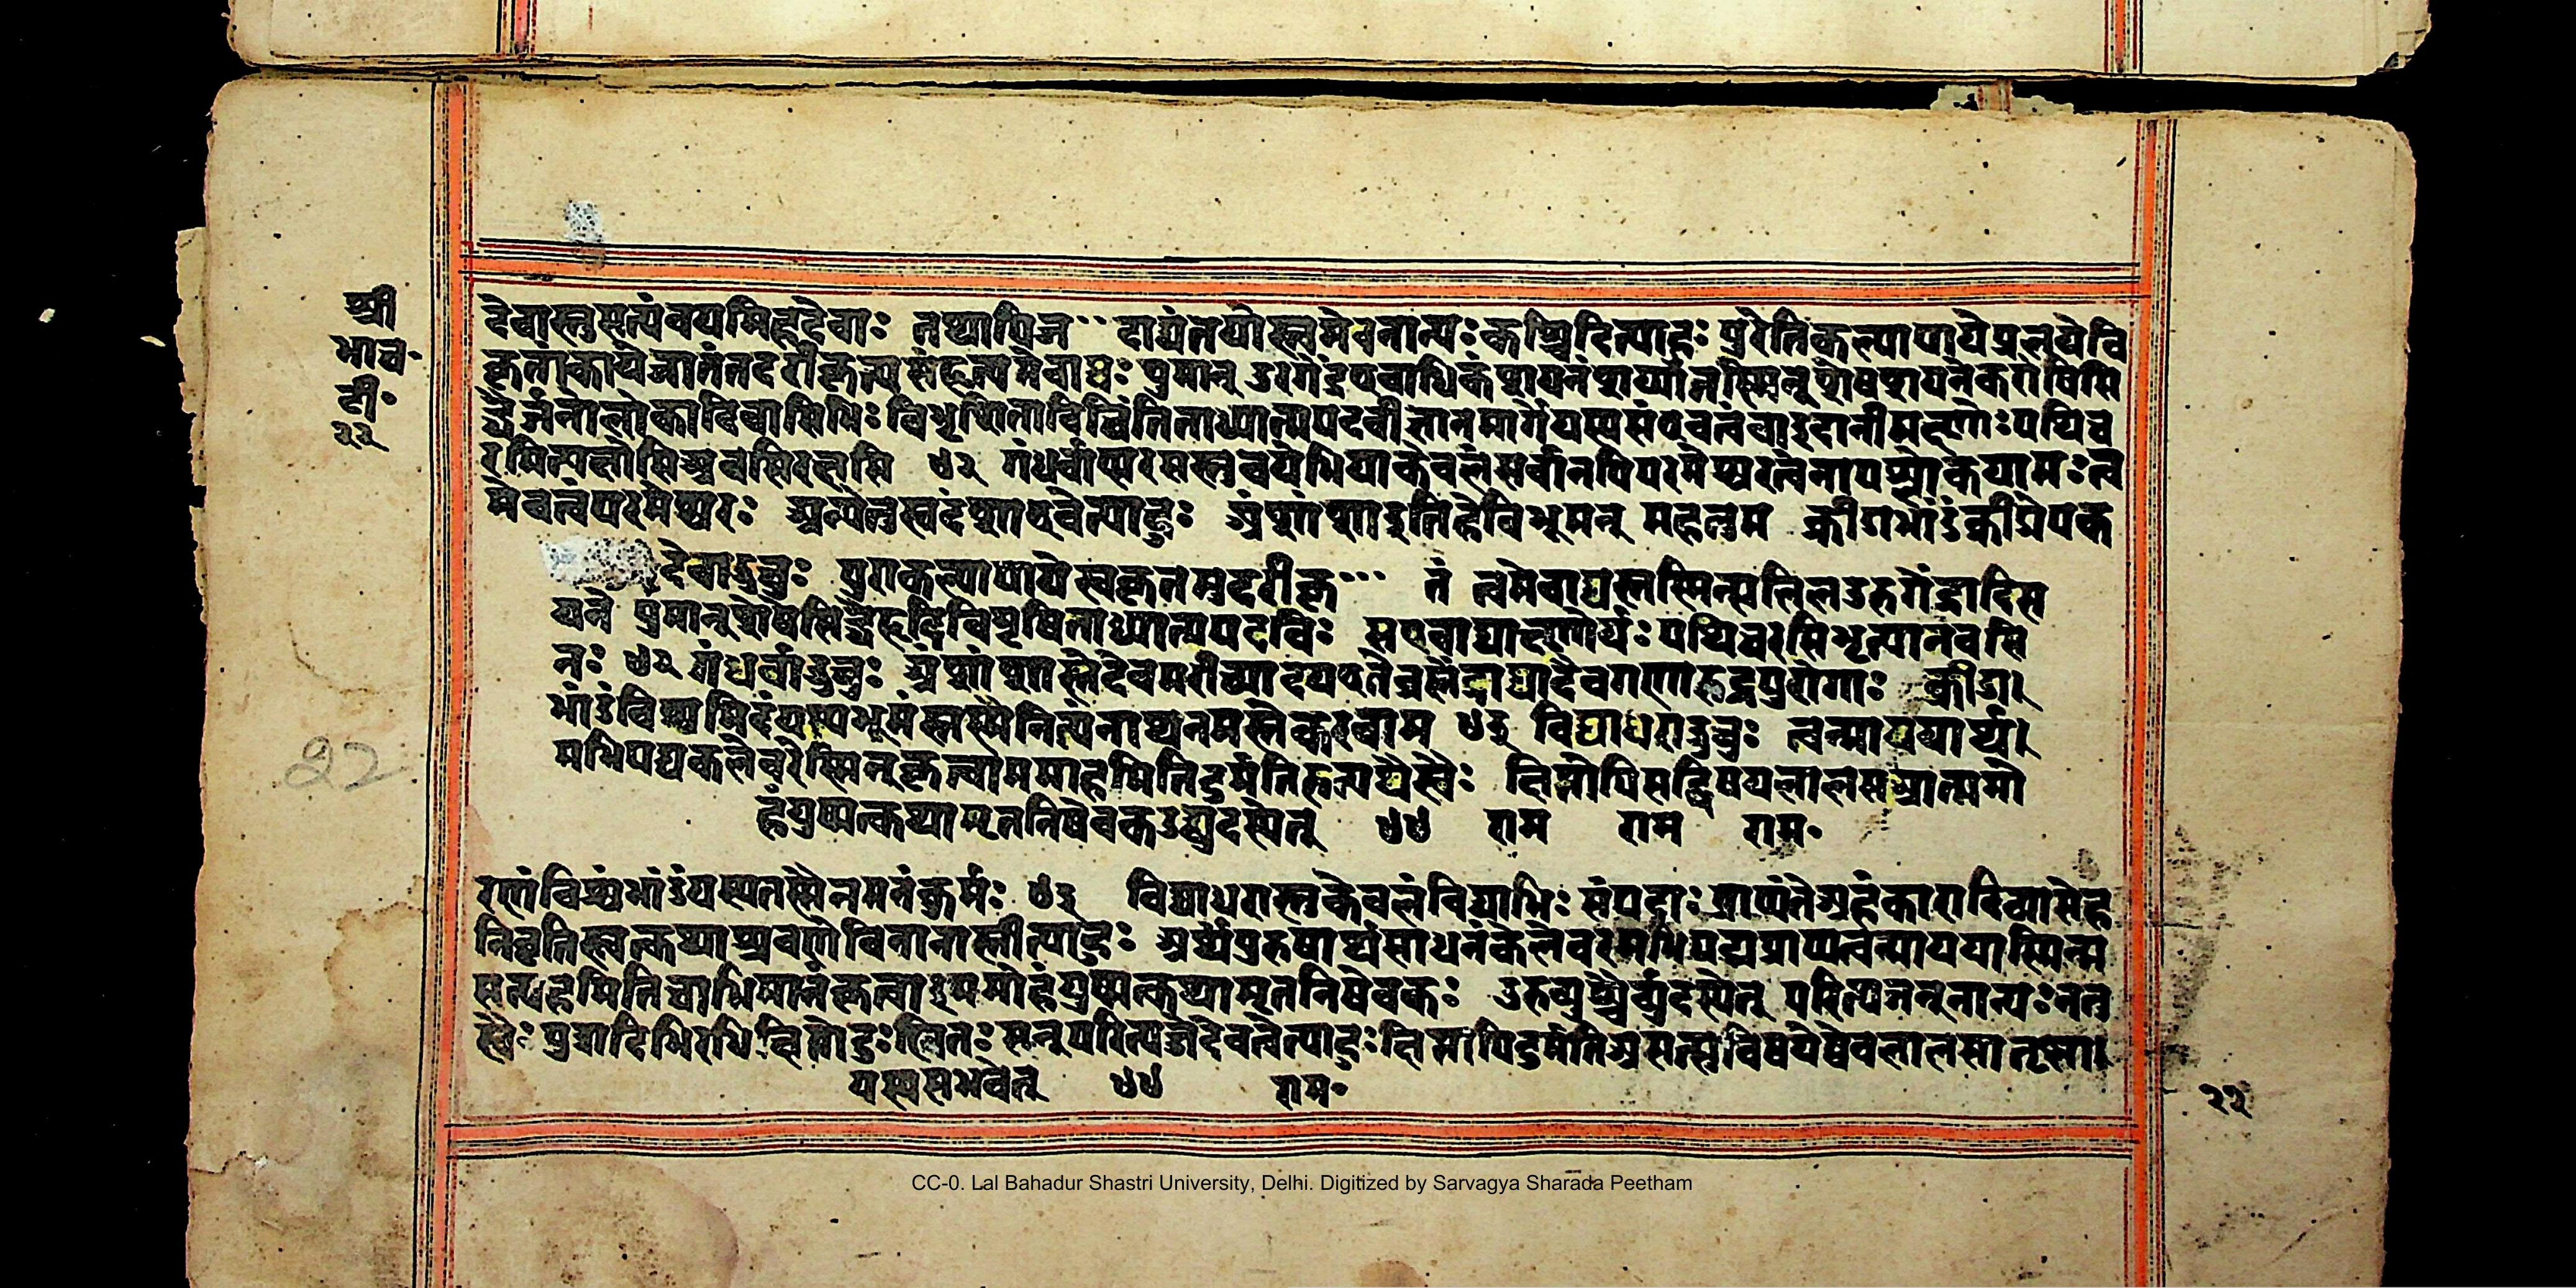 श्री
भाच॰
टी॰
२२
देवास्तुसत्यंवयमिहदेवाः तथापिज॰॰ दाद्यंतयोस्त्वमेवनान्यःकश्चिदित्याहः पुरेतिकल्पापायेप्रलयेवि
कृतंकार्यजातंतदरीकृत्यसंहृत्यमेवाद्यः पुमान् उरगेंद्रएवाधिकंशयनंशय्यातस्मिन् शेषेशयनंकरोषिसि
द्धैर्जनोलोकादिवासिभिः विमृशितोविचिंतितोध्यात्मपदवीज्ञानमार्गयस्यसएवत्वंवाऽदानीमक्ष्णोःपथिच
रसित्यतोसिअवसिरक्षसि ४२ गंधर्वाप्सरसस्तुवयंभियाकेवलंसर्वानपिपरमेश्वरत्वेनोपश्लोकयामःत्व
मेवत्वंपरमेश्वरः अन्येतुस्त्वदंशाएवेत्याहुः अंशांशाइतिहेविभूमन् महत्तम क्रीडाभांडंक्रीडोपक
देवाऊचुः पुराकल्पापायेस्वकृतमुदरीकृ॰॰॰ तं त्वमेवाद्यस्तस्मिन्सलिलउरुगेंद्रादिस
यने पुमान्शेषेसिद्धैर्हृदिविमृषिताध्यात्मपदविः सएवाद्याक्ष्णोर्यःपथिचरसिभृत्यानवसि
नः ४२ गंधर्वाऊचुः अंशांशास्तेदेवमरीच्यादयएतेब्रह्मेंद्राद्यादेवगणारुद्रपुरोगाः क्रीडा
भांडंविश्वमिदंयस्यभूमंस्तस्मैनित्यंनाथनमस्तेकरवाम ४३ विद्याधराऊचुः त्वन्माययार्थ।
मभिपद्यकलेवरेस्मिन्कृत्वाममाहमितिदुर्मतिरुत्पथैस्वैः क्षिप्तोपिसद्विषयलालसआत्ममो
हंयुष्मत्कथामृतनिषेवकउद्व्युदस्येत् ४४ राम राम राम॰
रणंविश्वंभांडंयस्यतस्मैनमनंकुर्मः ४३ विद्याधरास्तुकेवलंविद्याभिः संपदाःप्राप्यंतेअहंकारादिव्यामोह
निवृतिस्त्वत्कथाश्रवणंविनानास्तीत्याहुः अर्थ्यंपुरुषार्थंसाधनंकलेवरमभिपद्यप्राप्यत्वन्माययास्मिन्म
सत्यहमितिचाभिमानंकृत्वाऽममोहंयुष्मत्कथामृतनिषेवकः उरुव्युच्चैर्व्युदस्येत् परित्यजेन्नान्यःनत
स्वैः पुत्रादिभिरपि क्षिप्तोदुःखितः सन्परित्यजेदेवेत्वेत्याहुःक्षिप्तोपिदुर्मतिअसत्सुविषयेष्वेवलालसातृष्णा।
यस्यसभवेत् ४४ राम॰
22
२२
CC-0. Lal Bahadur Shastri University, Delhi. Digitized by Sarvagya Sharada Peetham